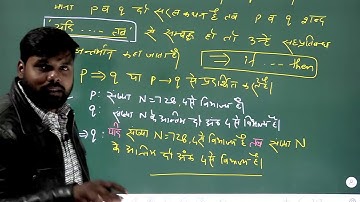 माना p व q दो सरल कथन हैं तब p व q शब्द
"यदि ..... तब" से सम्बद्ध हो तो उन्हें सप्रतिबन्ध
कहा जाता है। ⇒ if .... then
p ⇒ q या p → q से प्रदर्शित करते हैं।
p: संख्या N=728, 4 से विभाज्य है।
q: संख्या N के अन्तिम दो अंक 4 से विभाज्य है।
⇒ q: यदि संख्या N=728, 4 से विभाज्य है तब संख्या N
के अन्तिम दो अंक 4 से विभाज्य है।